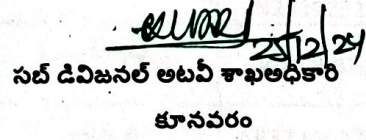 25/12/24
సబ్ డివిజనల్ అటవీ శాఖఅధికారి
కూనవరం